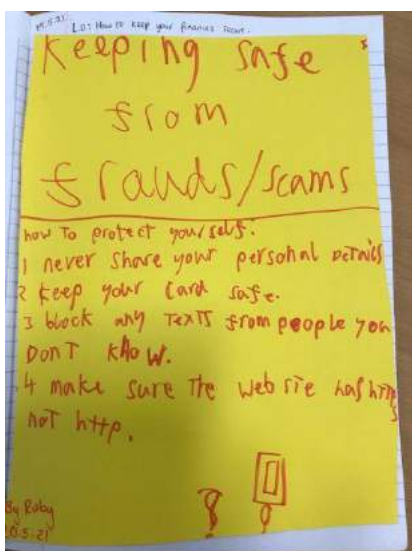 19.5.21 L.O: How to keep your finances secure.
Keeping safe
from
frauds/scams
how To protect yourself:
1 never share your personal DeTails
2 keep your card safe.
3 block any TexTs from people you
DonT know.
4 make sure The website has https
noT http.
By Ruby